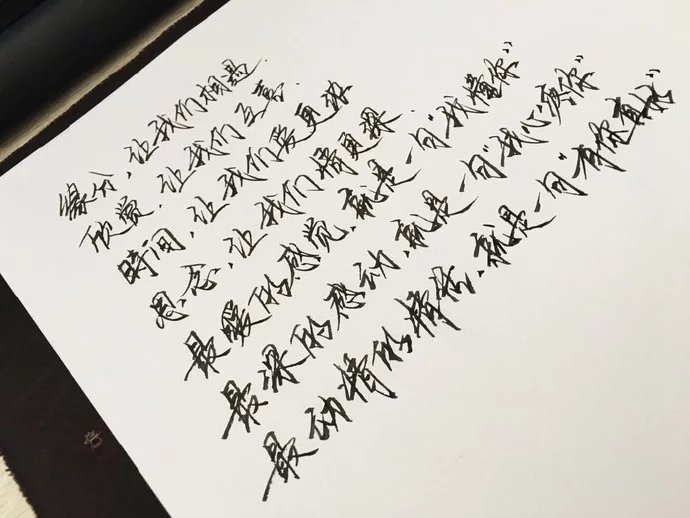 缘分,让我们相遇.
欣赏,让我们互喜.
時间,让我们爱更浓
思念,让我们情更深.
最暖的感觉,就是一句“我懂你”
最深的感动,就是一句“我心疼你”
最动情的情话,就是一句“有你真好”